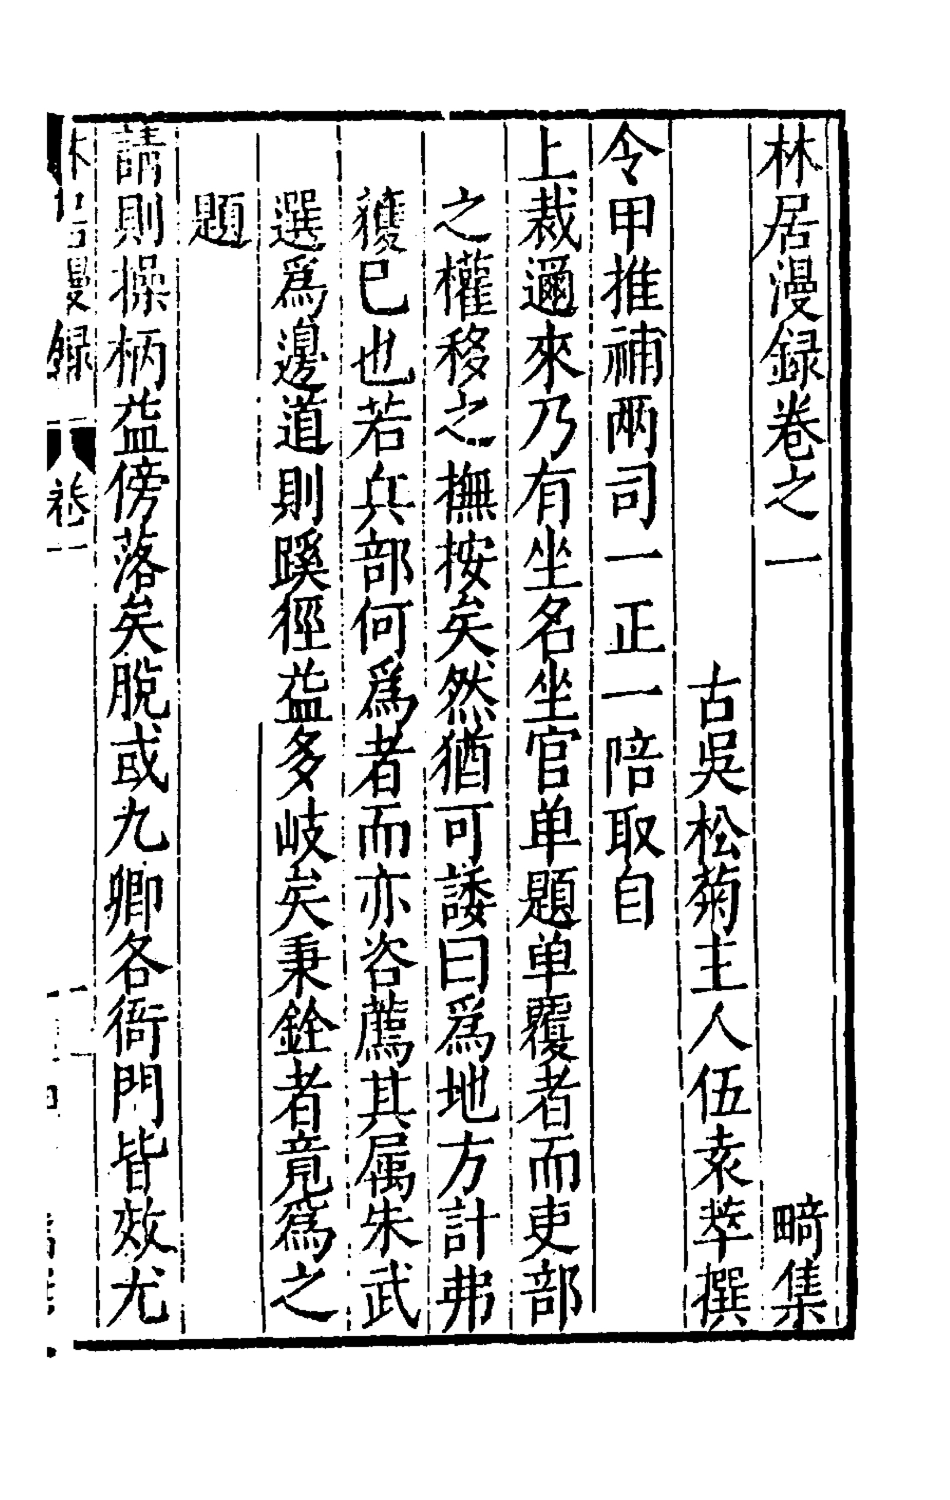 林居漫録卷之一 畸集
古吳松菊主人伍袁萃撰
令甲推補兩司一正一陪取自
上裁邇來乃有坐名坐官单題单覆者而吏部
之權移之撫按矣然猶可諉曰爲地方計弗
獲已也若兵部何爲者而亦咨薦其属朱武
選爲邊道則蹊徑益多岐矣秉銓者竟爲之
題
請則操柄益傍落矣脫或九卿各衙門皆效尤
林居漫録 卷一